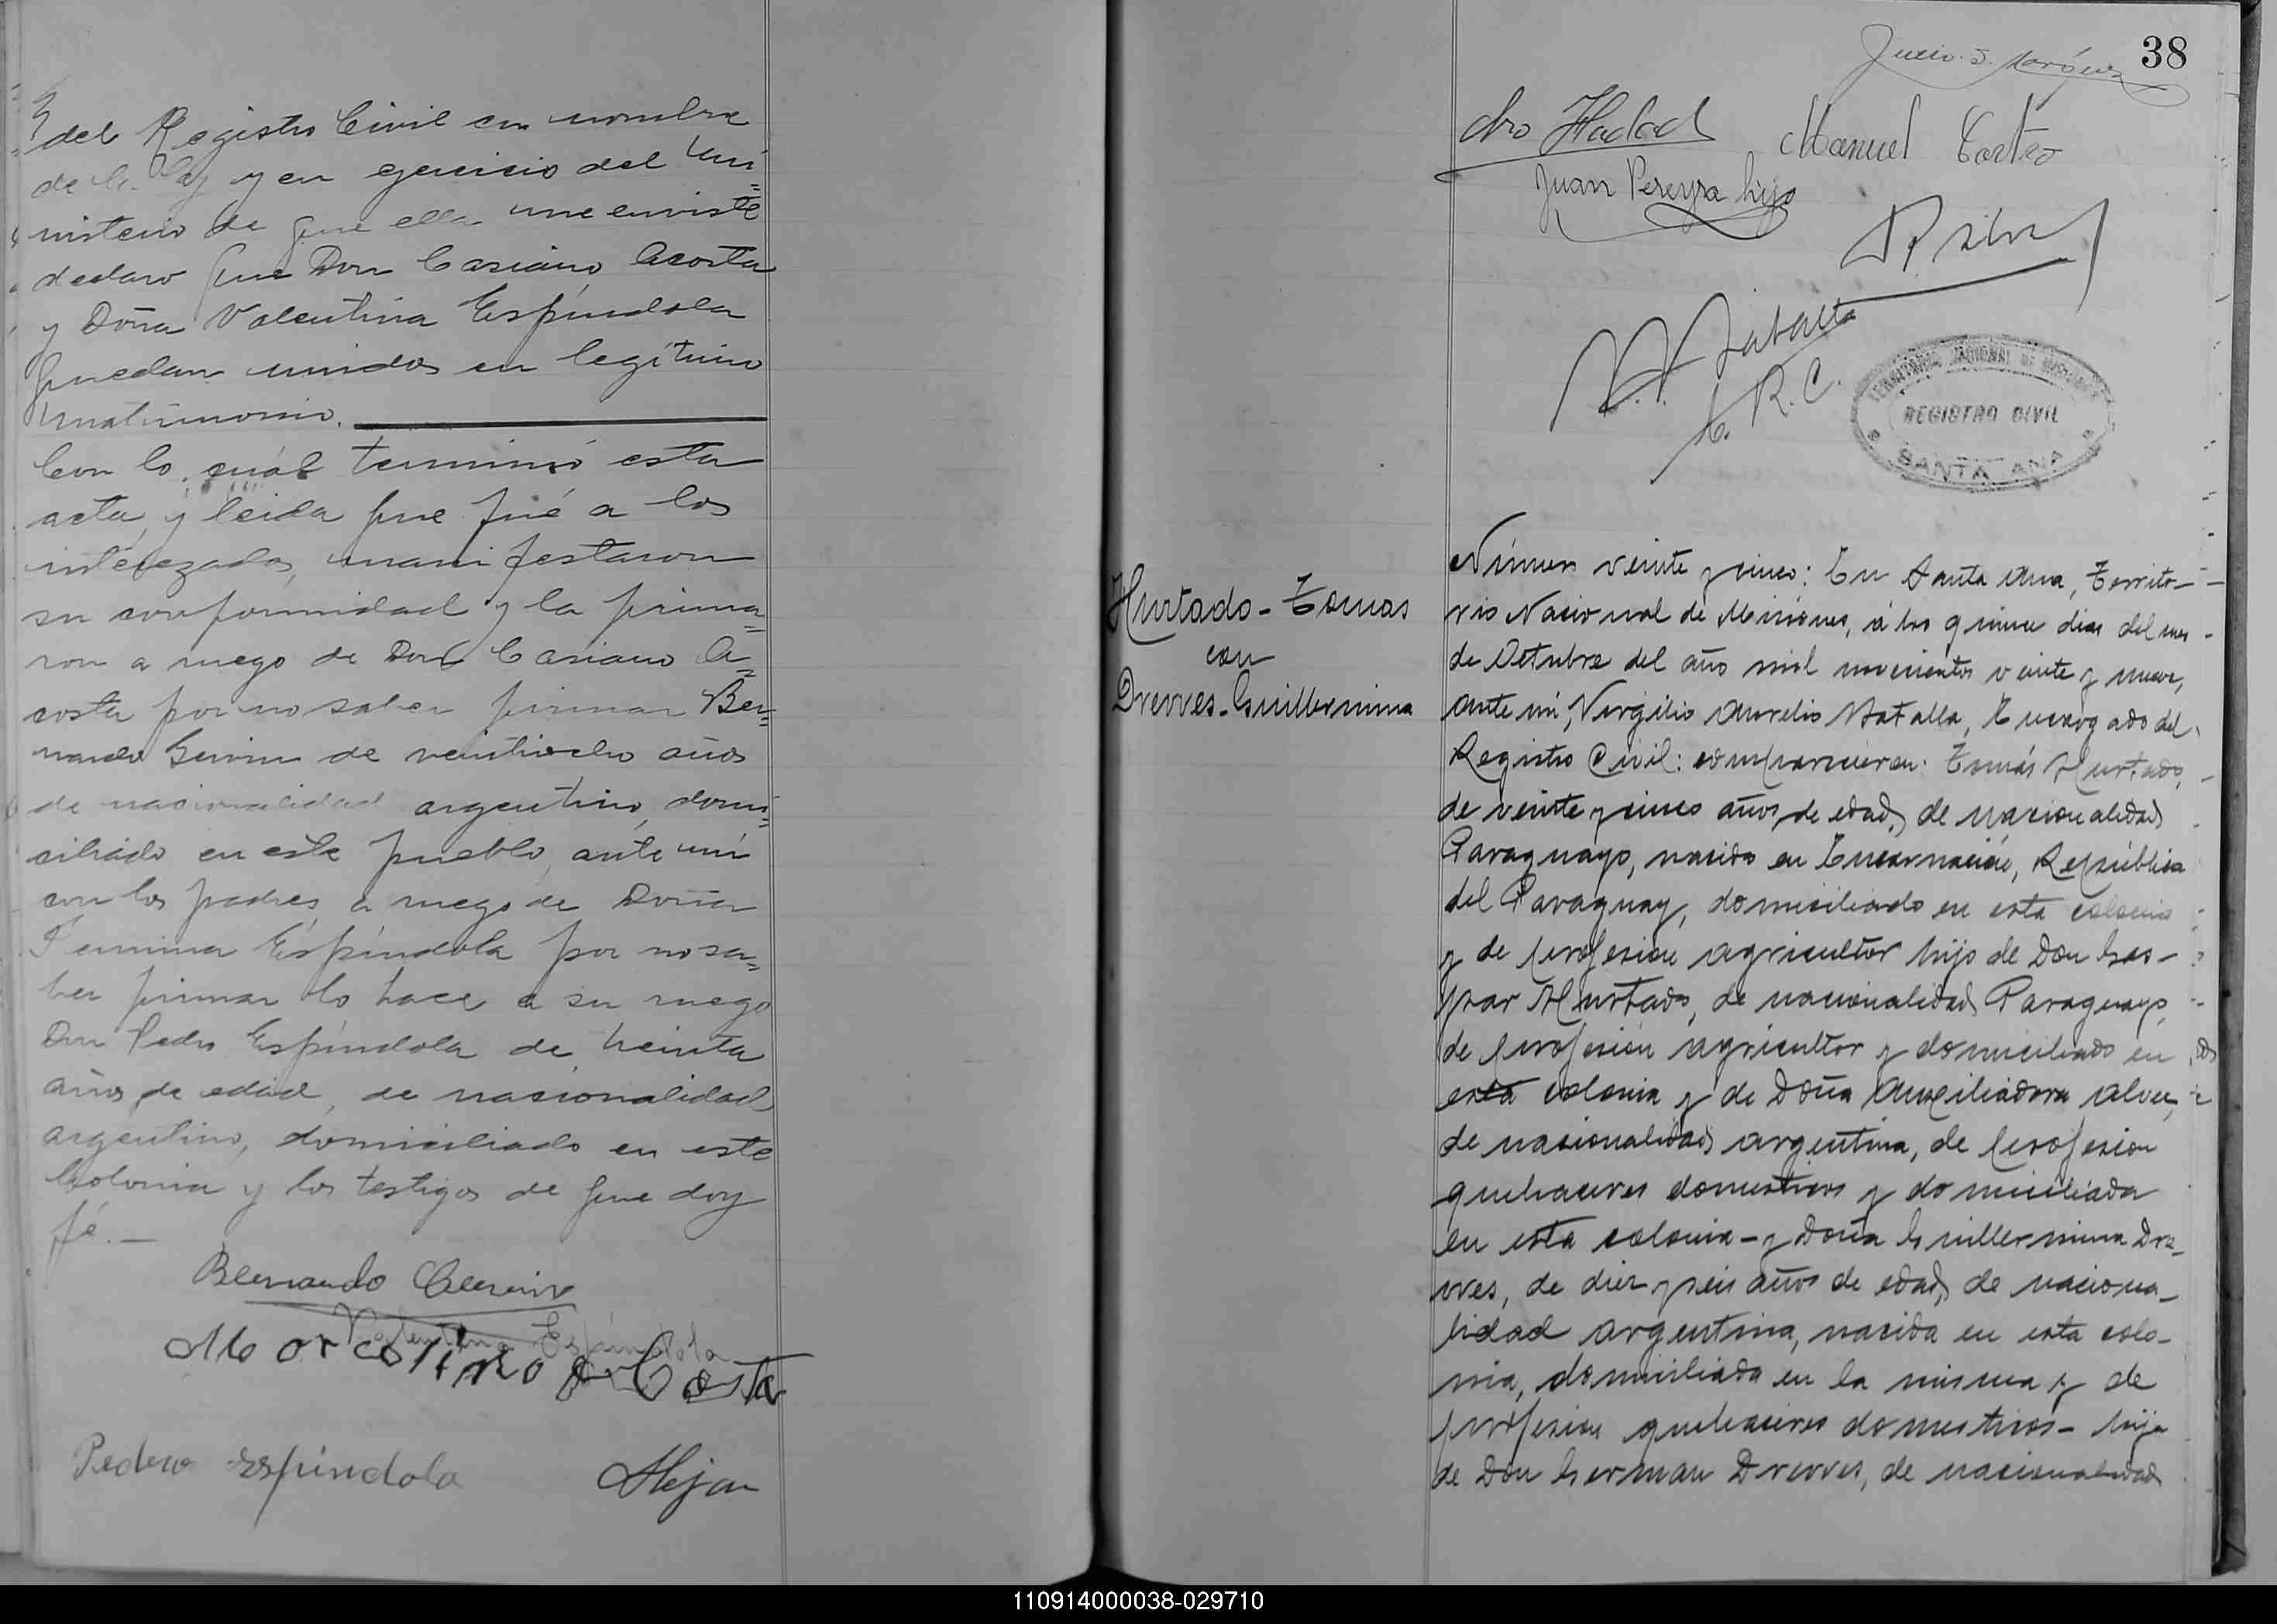 del Registro Civil en nombre
de la ley y en ejercicio del Mi=
nisterio de que ella me enviste
declaro que Don Casiano Acosta
y Doña Valentina Espíndola
quedan unidos en legítimo
matrimonio.
Con lo cuál terminó esta
acta, y leida que fué a los
interezados, manifestaron
su conformidad y la firma=
ron a ruego de Don Casiano A=
costa por no saber firmar Ber=
nardo de veintiocho años
de nacionalidad argentino, domi=
ciliado en este pueblo, ante mí
con los padres, a ruego de Doña
Fermina Espíndola por no sa=
ber firmar lo hace a su ruego
Don Pedro Espíndola de treinta
años de edad, de nacionalidad
argentino, domiciliado en este
Colonia y los testigos de que doy
fé.—
Bernardo
Valentina Espíndola
Marcolino a Costa
Pedro Espindola Alejan
38
dro Hadad Manuel Castro
Juan Pereyra hijo
E. R. C.
TERRITORIO NACIONAL DE MISIONES
REGISTRO CIVIL
SANTA ANA
Hurtado - Tomas
con
Drevves - Guillermina
Número veinte y cinco: En Santa Ana, Territo-
rio Nacional de Misiones, á los quince dias del mes
de Octubre del año mil novecientos veinte y nueve,
ante mí, Virgilio Aurelio Encargado del
Registro Civil: comparecieron: Tomás Hurtado,
de veinte y cinco años de edad, de nacionalidad
Paraguayo, nacido en Encarnación, República
del Paraguay, domiciliado en esta colonia
y de profesion agricultor hijo de Don Gas-
par Hurtado, de nacionalidad Paraguayo,
de profesion agricultor y domiciliado en
esta colonia y de Doña Auxiliadora Alvez,
de nacionalidad argentina, de profesion
quehaceres domesticos y domiciliada
en esta colonia - y Doña Guillermina Dre-
vves, de diez y seis años de edad, de naciona-
lidad argentina, nacida en esta colo-
nia, domiciliada en la misma y de
profesion quehaceres domesticos - hija
de Don German Drevves, de nacionalidad
110914000038-029710